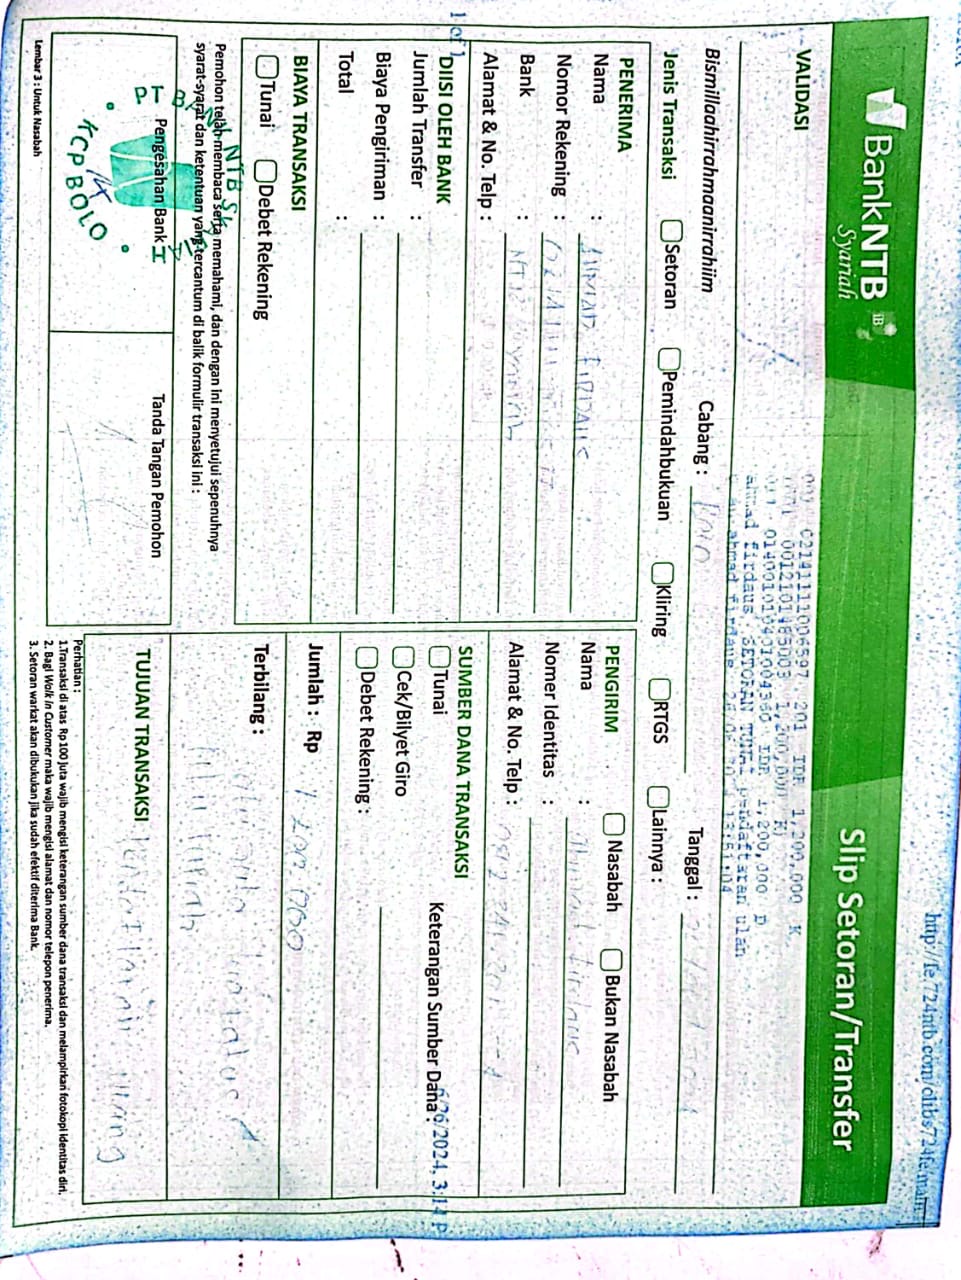 http://fe.724ntb.com/olibs724fe/main
BankNTB
Syariah
iB
Slip Setoran/Transfer
VALIDASI
001 0214111006597 201 IDR 1,200,000 K
ahmad firdaus SETORAN TUNAI pendaftaran ulan
ahmad firdaus
Bismillaahirrahmaanirrahiim
Cabang : Bolo
Tanggal :
Jenis Transaksi
Setoran
Pemindahbukuan
Kliring
RTGS
Lainnya :
PENERIMA
Nama : AHMAD FIRDAUS
Nomor Rekening :
Bank : NTB Syariah
Alamat & No. Telp :
PENGIRIM
Nasabah
Bukan Nasabah
Nama : Ahmad firdaus
Nomer Identitas :
Alamat & No. Telp :
1 of 1
DIISI OLEH BANK
Jumlah Transfer :
Biaya Pengiriman :
Total :
SUMBER DANA TRANSAKSI
Tunai
Cek/Bilyet Giro
Debet Rekening :
Keterangan Sumber Dana :
6/26/2024, 3:14 P
BIAYA TRANSAKSI
Tunai
Debet Rekening
Jumlah : Rp 1.200.000
Terbilang : satu juta dua ratus
ribu rupiah
Pemohon telah membaca serta memahami, dan dengan ini menyetujui sepenuhnya
syarat-syarat dan ketentuan yang tercantum di balik formulir transaksi ini :
Pengesahan Bank
Tanda Tangan Pemohon
PT BANK NTB SYARIAH
KCP BOLO
TUJUAN TRANSAKSI Pendaftaran Ulang
Lembar 3 : Untuk Nasabah
Perhatian :
1.Transaksi di atas Rp 100 juta wajib mengisi keterangan sumber dana transaksi dan melampirkan fotokopi identitas diri.
2. Bagi Walk in Customer maka wajib mengisi alamat dan nomor telepon penerima.
3. Setoran warkat akan dibukukan jika sudah efektif diterima Bank.